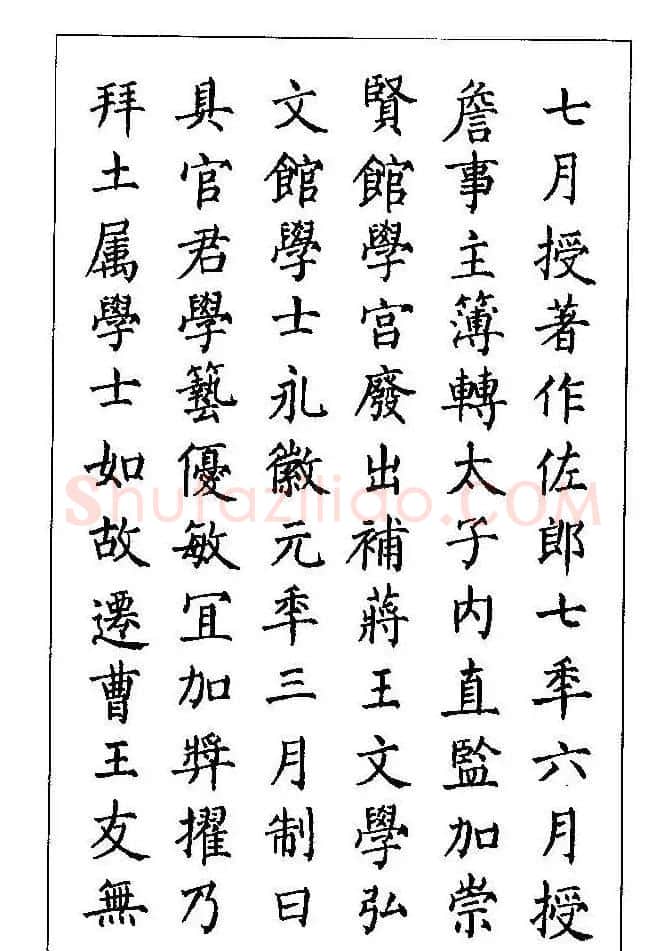 七月授著作佐郎七秊六月授
詹事主簿轉太子内直監加崇
賢館學宫廢出補蔣王文學弘
文館學士永徽元秊三月制曰
具官君學藝優敏冝加獎擢乃
拜土属學士如故遷曹王友無
Shufaziliao.COM